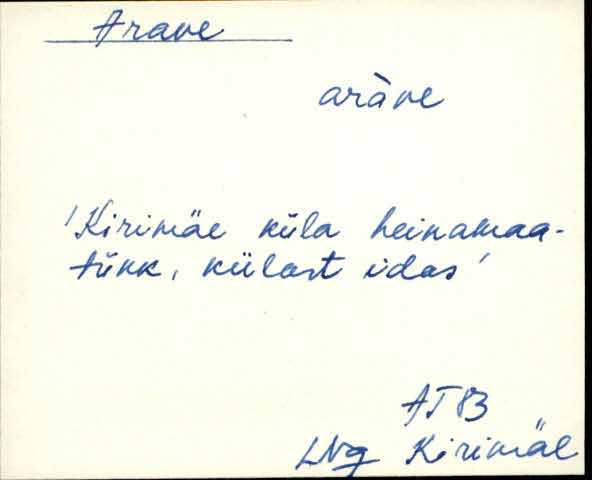 Arave
aràve
'Kirimäe küla heinamaa-
tükk, külast idas'
AT 83
LNg Kirimäe